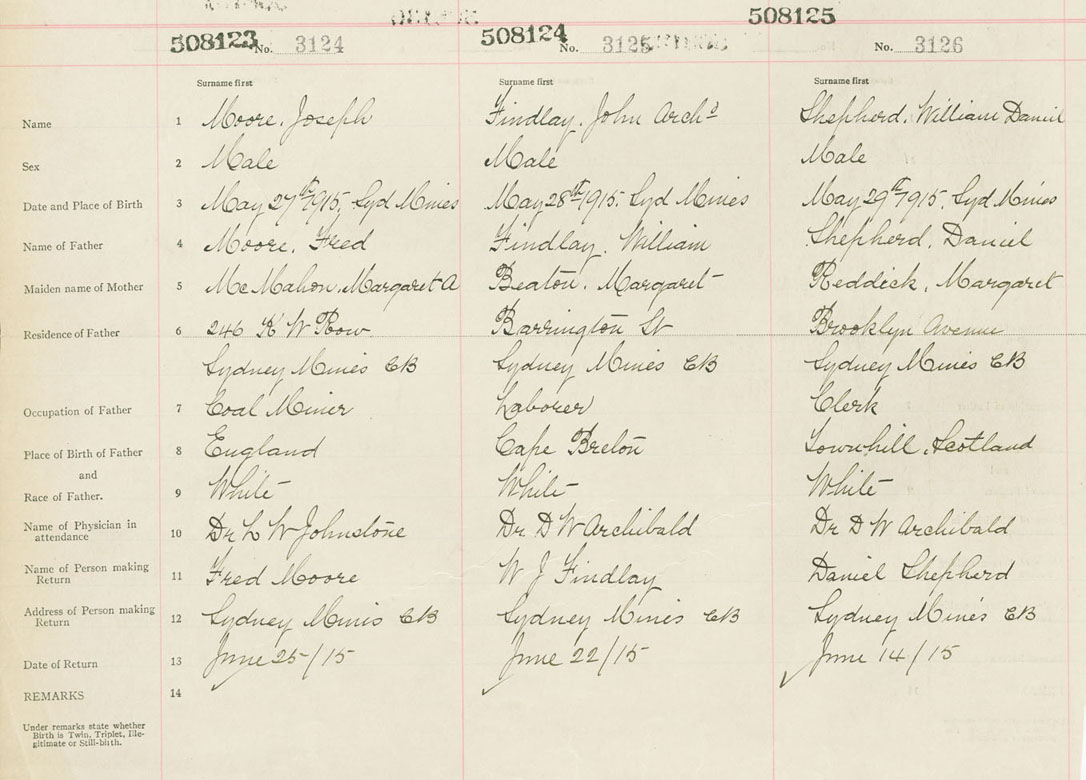 508123 508124 508125
No. 3124 No. 3125 No. 3126
Surname first Surname first Surname first
Name 1 Moore, Joseph Findlay, John Archd Shepherd, William Daniel
Sex 2 Male Male Male
Date and Place of Birth 3 May 27th 1915, Syd Mines May 28th 1915, Syd Mines May 29th 1915, Syd Mines
Name of Father 4 Moore, Fred Findlay, William Shepherd, Daniel
Maiden name of Mother 5 McMahon, Margaret A Beaton, Margaret Reddick, Margaret
Residence of Father 6 246 K W Row Barrington St Brooklyn Avenue
Sydney Mines CB Sydney Mines CB Sydney Mines CB
Occupation of Father 7 Coal Miner Laborer Clerk
Place of Birth of Father 8 England Cape Breton Townhill, Scotland
and
Race of Father. 9 White White White
Name of Physician in
attendance 10 Dr L W Johnstone Dr. D W Archibald Dr D W Archibald
Name of Person making
Return 11 Fred Moore W J Findlay Daniel Shepherd
Address of Person making
Return 12 Sydney Mines CB Sydney Mines CB Sydney Mines CB
Date of Return 13 June 25/15 June 22/15 June 14/15
REMARKS 14
Under remarks state whether
Birth is Twin, Triplet, Ille-
gitimate or Still-birth.